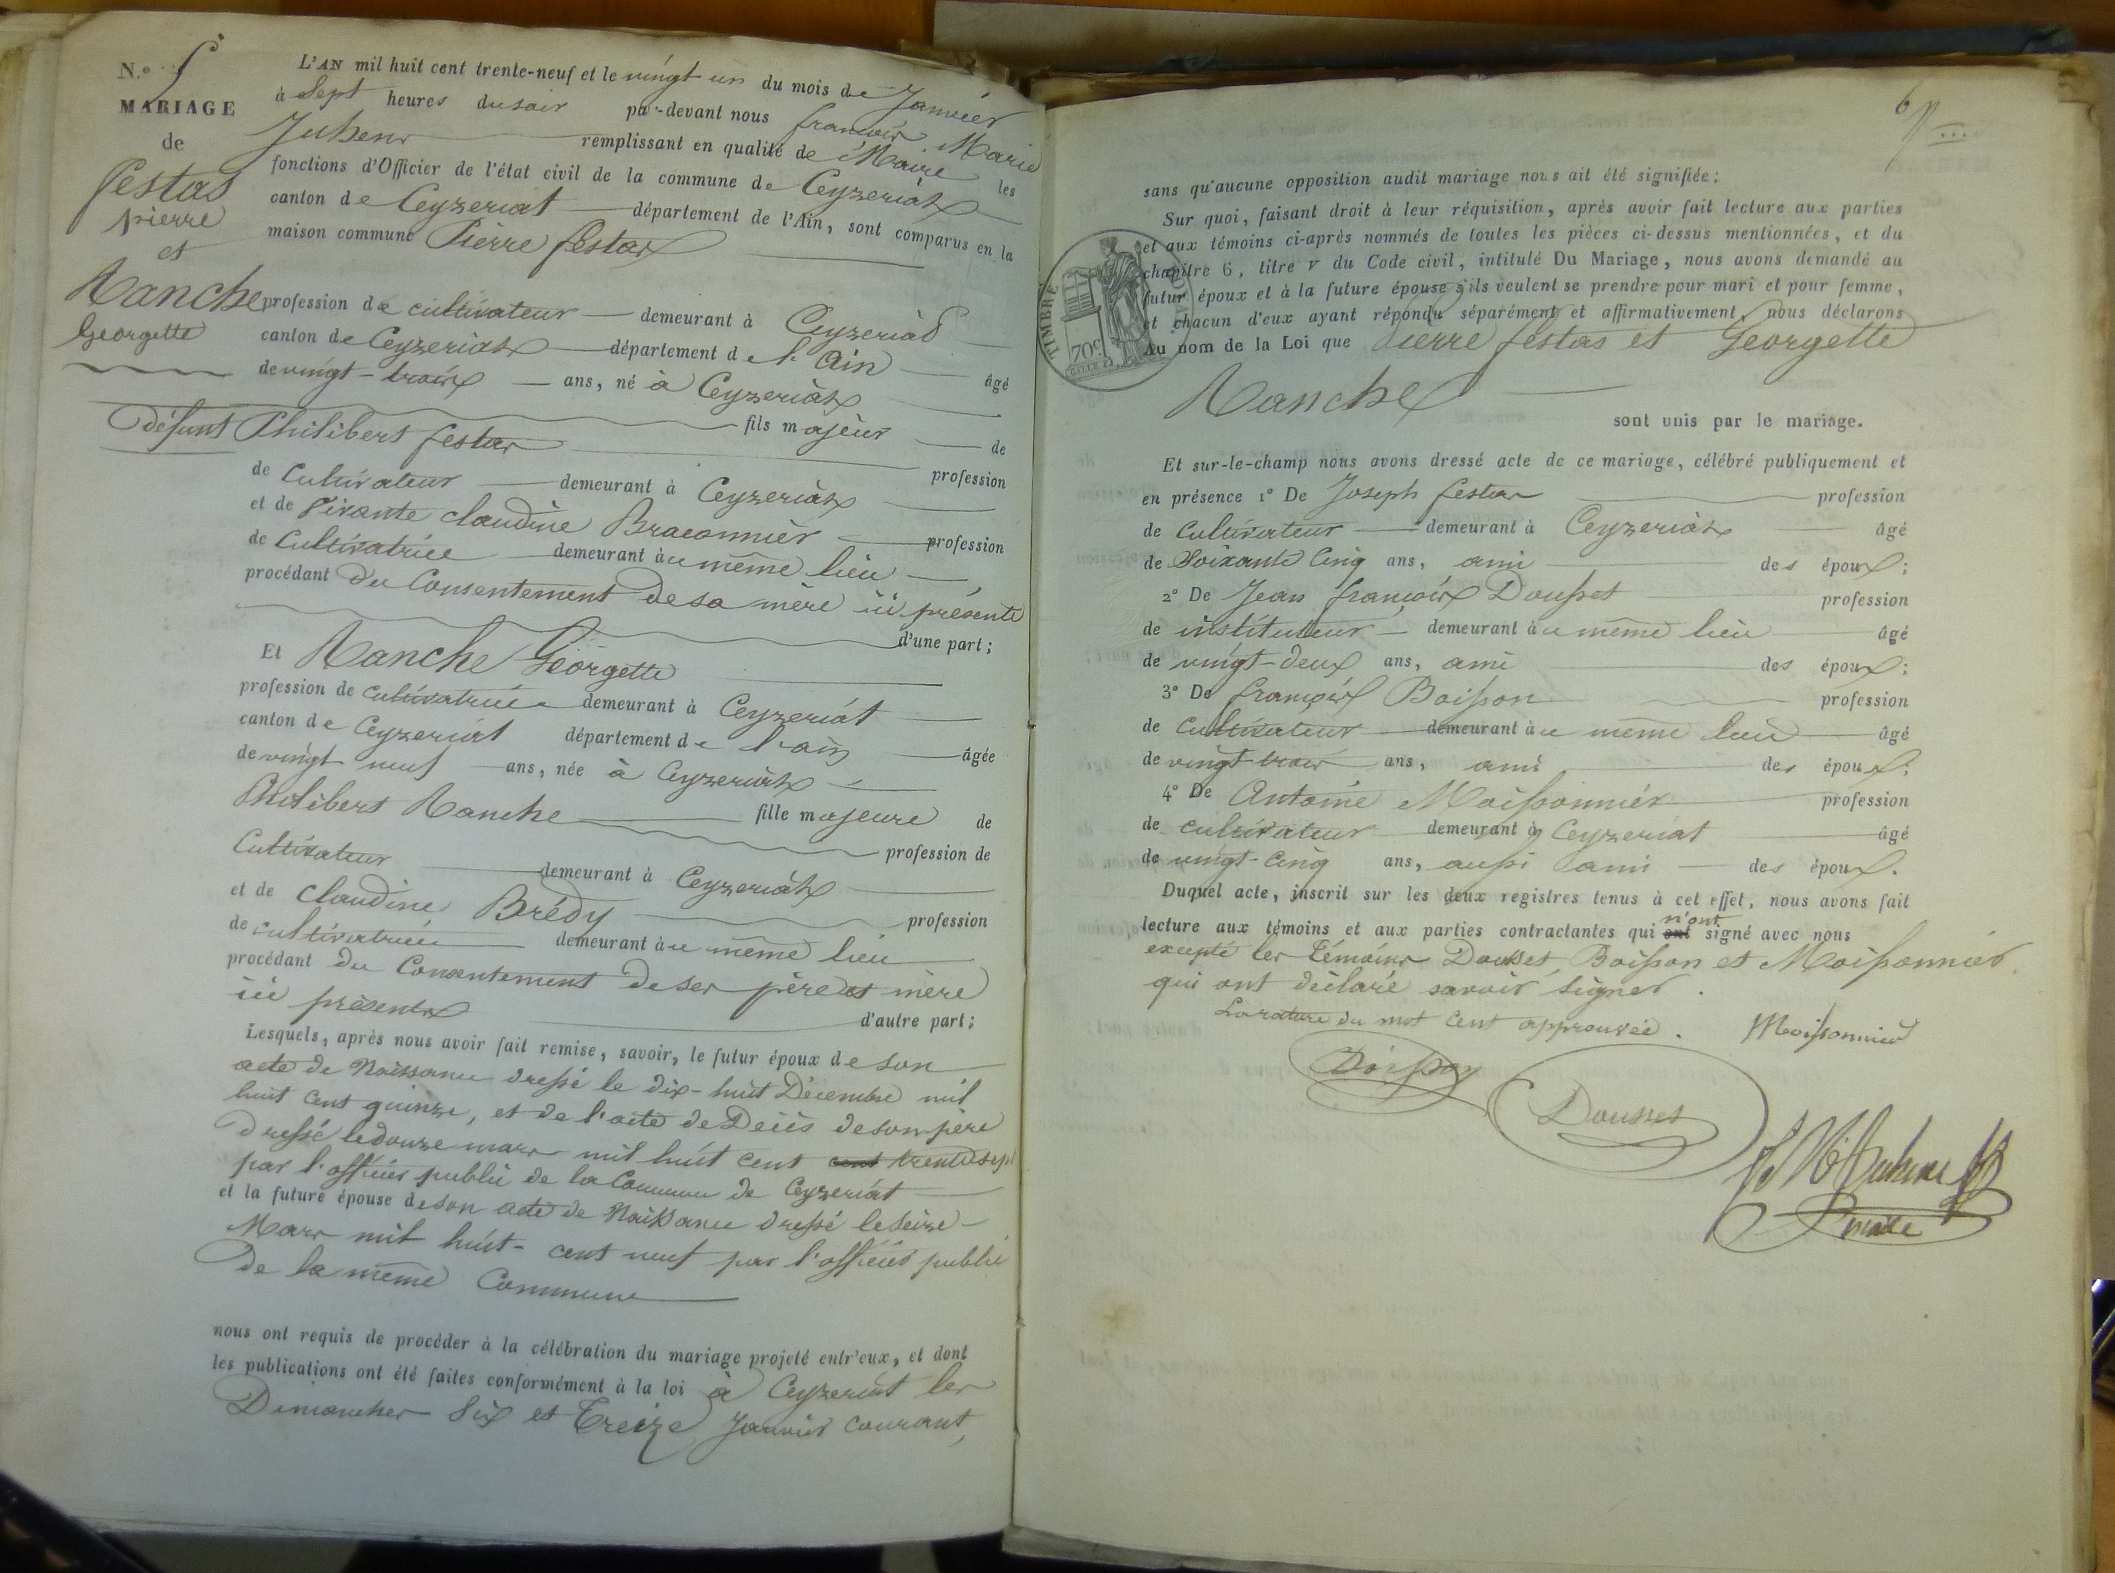 N.º 5
MARIAGE
de
festas
pierre
et
Ranche
Georgette
L'AN mil huit cent trente-neuf et le vingt un du mois de Janvier
à Sept heures du soir par-devant nous françois Marie
Juhenr remplissant en qualité de Maire les
fonctions d'Officier de l'état civil de la commune de Ceyzeriat
canton de Ceyzeriat département de l'Ain, sont comparus en la
maison commune Pierre festas
profession de cultivateur demeurant à Ceyzeriat
canton de Ceyzeriat département de l'Ain âgé
de vingt-trois ans, né à Ceyzeriat
fils majeur de
défunt Philibert festas profession
de Cultivateur demeurant à Ceyzeriat
et de Vivante claudine Braconnier profession
de Cultivatrice demeurant au même lieu
procédant du Consentement de sa mère ici présente
d'une part;
Et Ranche Georgette
profession de cultivatrice demeurant à Ceyzeriat
canton de Ceyzeriat département de l'ain âgée
de vingt neuf ans, née à Ceyzeriat
fille majeure de
Philibert Ranche profession de
Cultivateur demeurant à Ceyzeriat
et de Claudine Brédy profession
de cultivatrice demeurant au même lieu
procédant du Consentement de ses père et mère
ici présents d'autre part;
Lesquels, après nous avoir fait remise, savoir, le futur époux de son
acte de Naissance dressé le dix-huit Décembre mil
huit cent quinze, et de l'acte de Décès de son père
dressé le douze mars mil huit cent cent trente sept
par l'officier public de la Commune de Ceyzeriat
et la future épouse de son acte de Naissance dressé le seize
Mars mil huit-cent neuf par l'officier public
de la même Commune
nous ont requis de procéder à la célébration du mariage projeté entr'eux, et dont
les publications ont été faites conformément à la loi à Ceyzeriat les
Dimanches Six et Treize Janvier courant,
6
sans qu'aucune opposition audit mariage nous ait été signifiée;
Sur quoi, faisant droit à leur réquisition, après avoir fait lecture aux parties
et aux témoins ci-après nommés de toutes les pièces ci-dessus mentionnées, et du
chapitre 6, titre V du Code civil, intitulé Du Mariage, nous avons demandé au
futur époux et à la future épouse s'ils veulent se prendre pour mari et pour femme,
et chacun d'eux ayant répondu séparément et affirmativement, nous déclarons
au nom de la Loi que Pierre festas et Georgette
Ranche
sont unis par le mariage.
TIMBRE
70c
Et sur-le-champ nous avons dressé acte de ce mariage, célébré publiquement et
en présence 1º De Joseph festas profession
de Cultivateur demeurant à Ceyzeriat âgé
de Soixante Cinq ans, ami des époux;
2º De Jean françois Dousset profession
de instituteur demeurant au même lieu âgé
de vingt-deux ans, ami des époux;
3º De françois Boisson profession
de Cultivateur demeurant au même lieu âgé
de vingt trois ans, ami des époux;
4º De Antoine Moissonnier profession
de cultivateur demeurant à Ceyzeriat âgé
de vingt-cinq ans, aussi ami des époux.
Duquel acte, inscrit sur les deux registres tenus à cet effet, nous avons fait
lecture aux témoins et aux parties contractantes qui ont n'ont signé avec nous
excepté les témoins Dousset, Boisson et Moissonnier
qui ont déclaré savoir signer.
La rature du mot cent approuvée. Moissonnier
Boisson
Dousset
maire